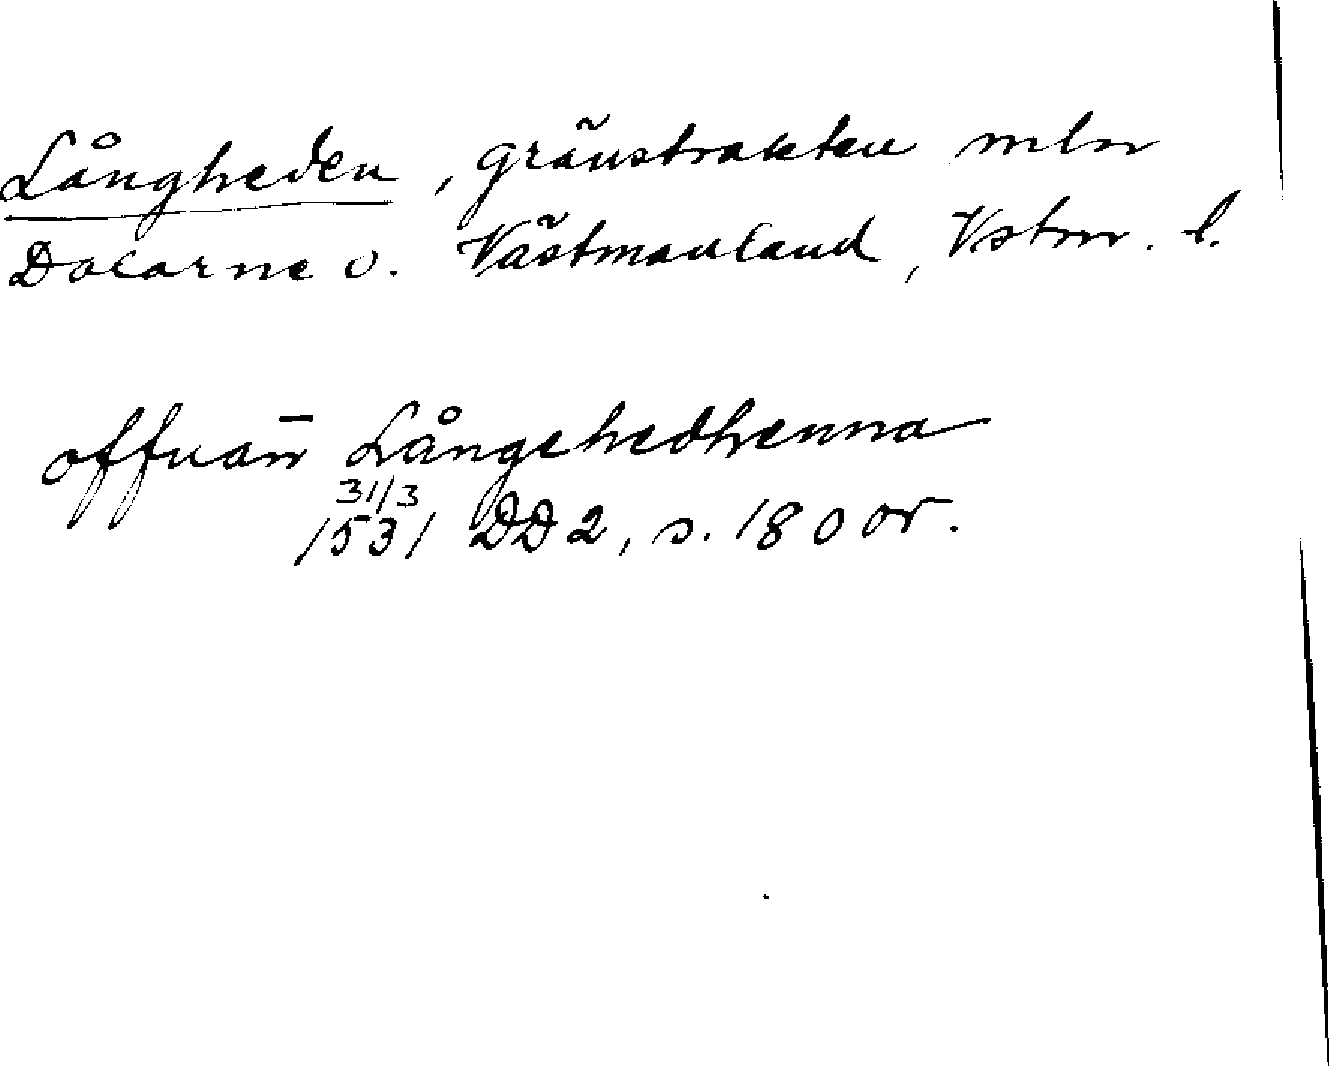 Långheden, gränstrakten mln
Dalarne o. Västmanland, Vstm. l.
offuan̄ Långehedhenna
31/3
1531 DD2, s. 180 or.